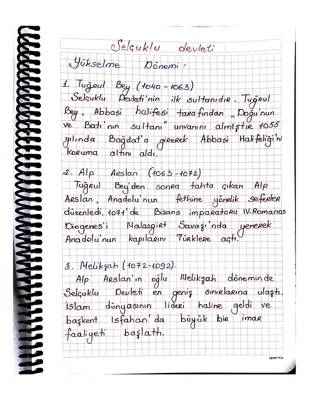 Selçuklu devleti
Yükselme Dönemi:
1. Tuğrul Bey (1040-1063)
Selçuklu Devleti'nin ilk sultanıdır. Tuğrul
Bey, Abbasi halifesi tarafından "Doğu'nun
ve Batı'nın sultanı" unvanını almıştır 1055
yılında Bağdat'a girerek Abbasi Halifeliği'ni
koruma altını aldı.
2. Alp Arslan (1063-1072)
Tuğrul Bey'den sonra tahta çıkan Alp
Arslan, Anadolu'nun fethine yönelik seferler
düzenledi. 1071'de Bizans imparatoru IV. Romanos
Diogenes'i Malazgirt Savaşı'nda yenerek
Anadolu'nun kapılarını Türklere açtı.
3. Melikşah (1072-1092).
Alp Arslan'ın oğlu Melikşah döneminde
Selçuklu Devleti en geniş sınırlarına ulaştı.
İslam dünyasının lideri haline geldi ve
başkent Isfahan'da büyük bir imar
faaliyeti başlattı.